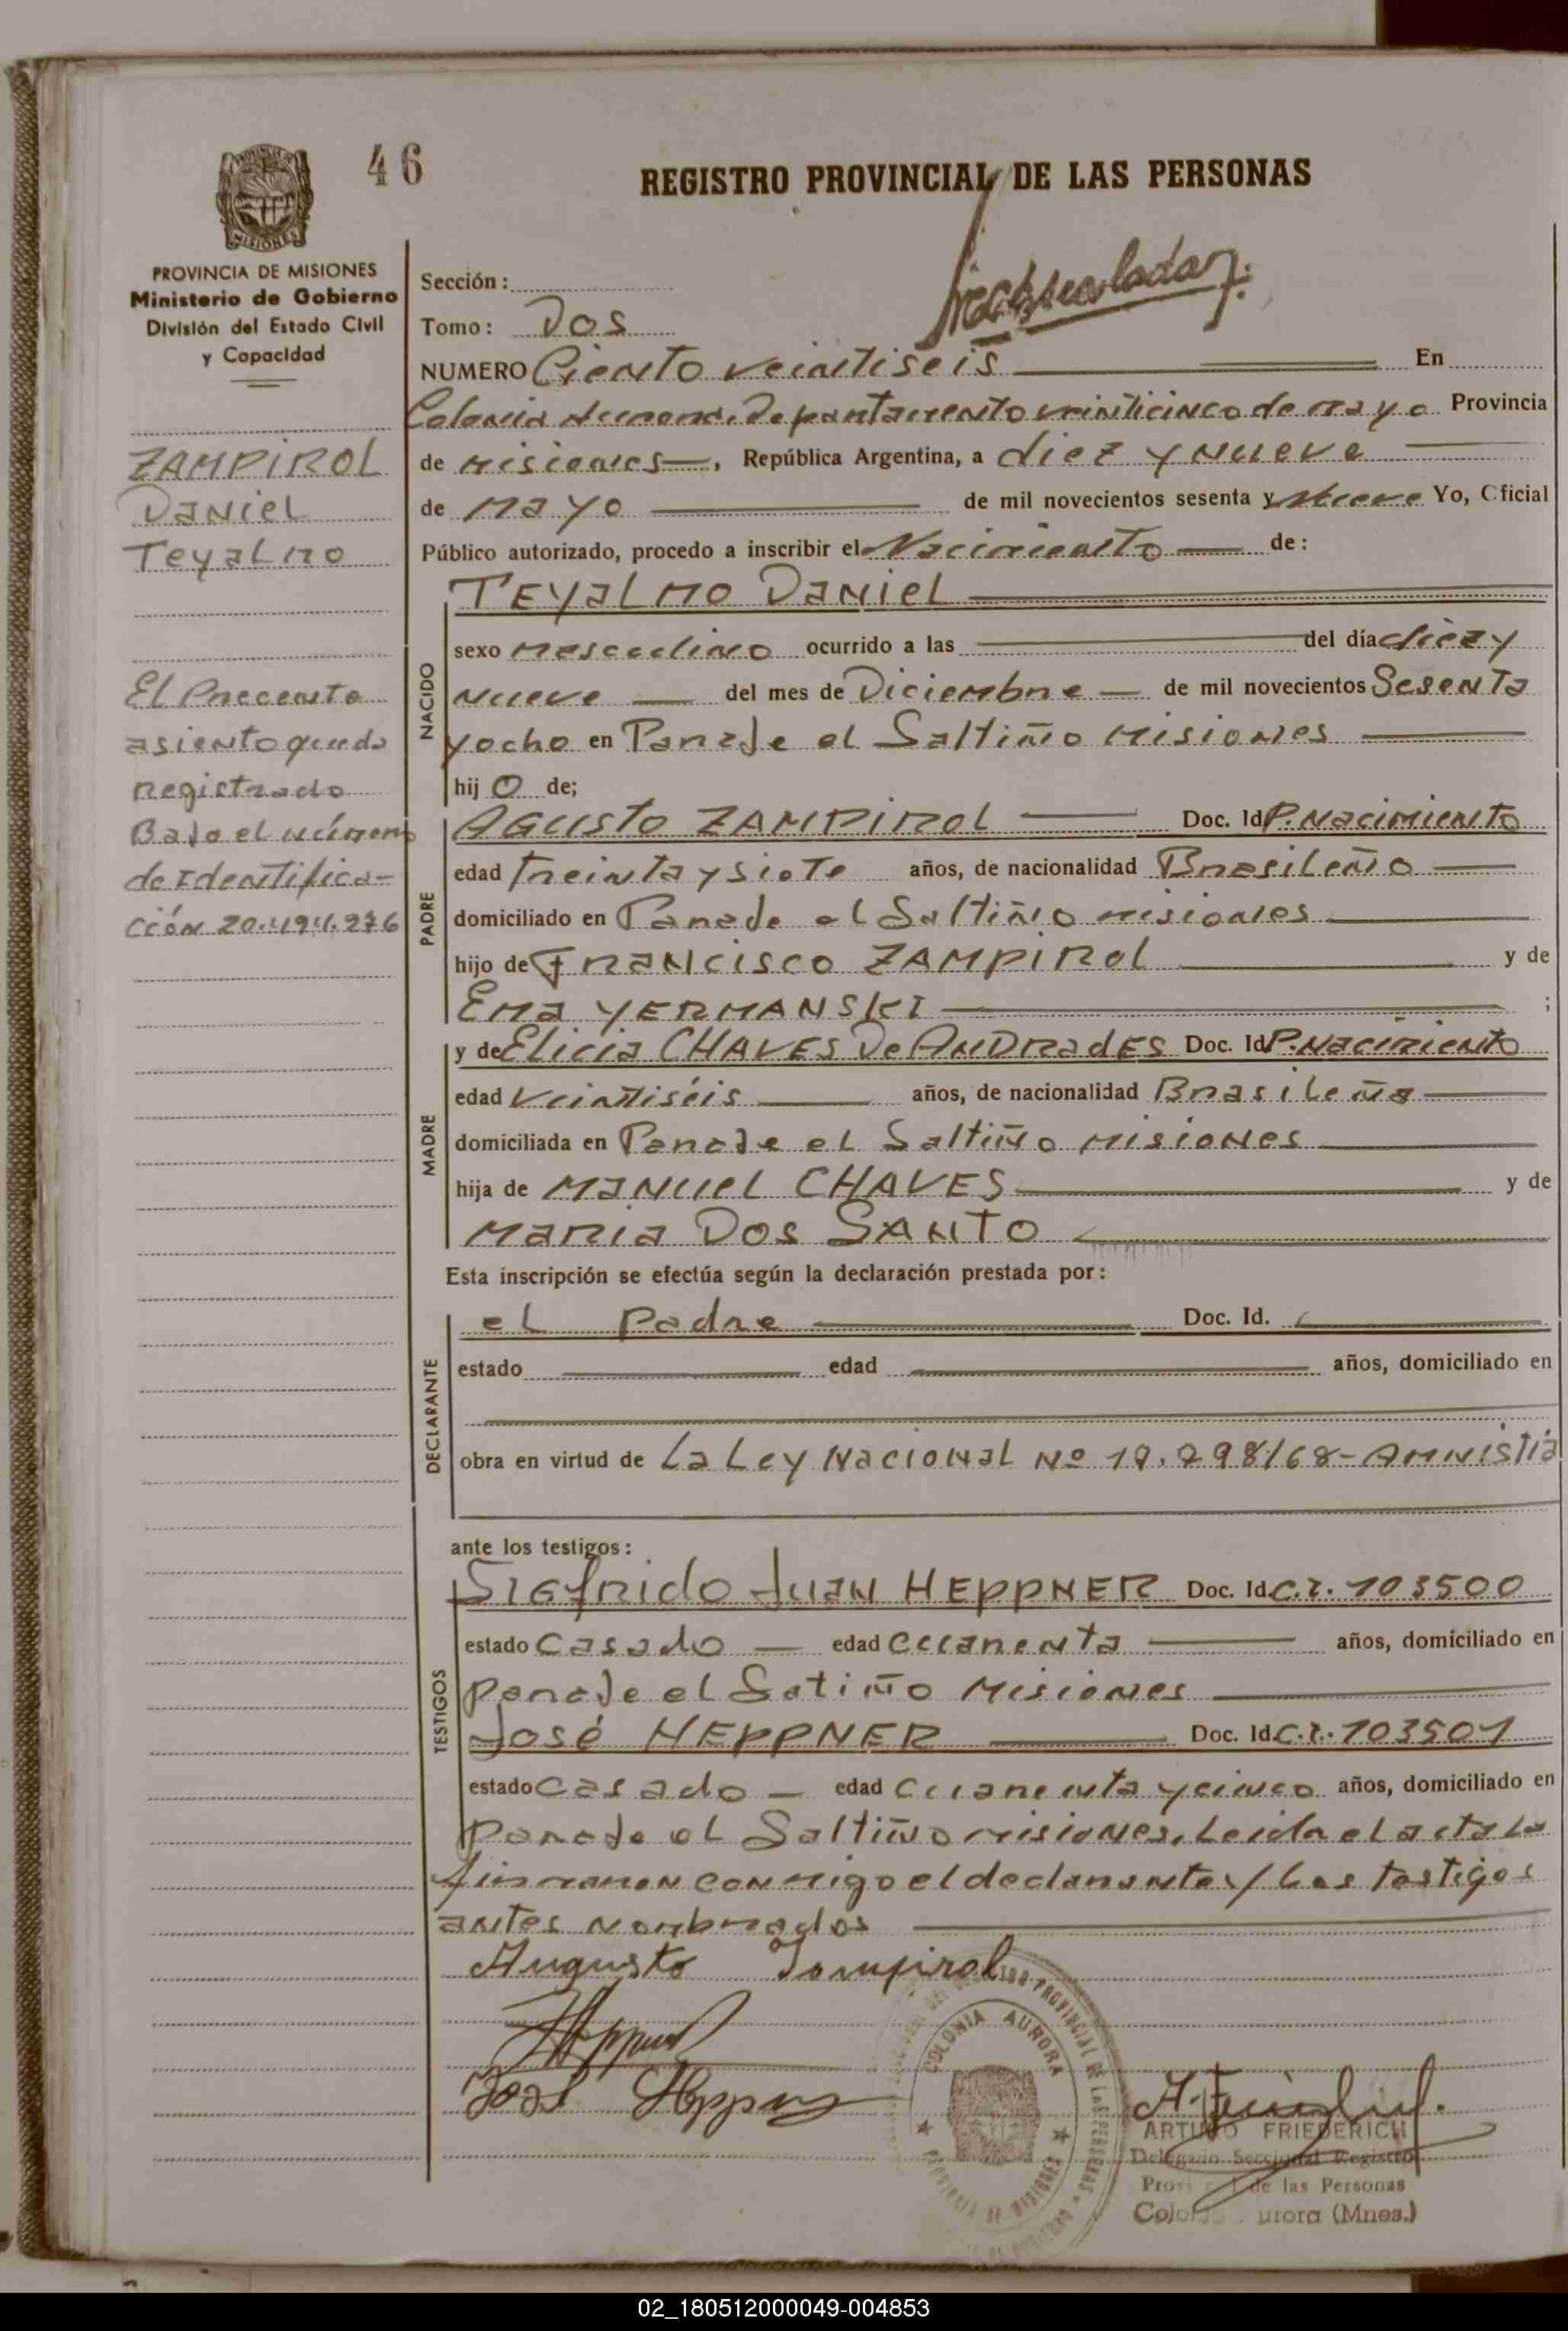 46
REGISTRO PROVINCIAL DE LAS PERSONAS
MISIONES
PROVINCIA DE MISIONES
Ministerio de Gobierno
División del Estado Civil
y Capacidad
ZAMPIROL
Daniel
Teyalmo
El Precente
asiento queda
registrado
Bajo el número
de Identifica-
ción
Sección:
Tomo: Dos
NUMERO Ciento veintiseis En
Colonia Aurora, Departamento veinticinco de mayo Provincia
de Misiones, República Argentina, a diez y nueve
de Mayo de mil novecientos sesenta y nueve Yo, Oficial
Público autorizado, procedo a inscribir el Nacimiento de:
TEYALMO DANIEL
NACIDO
sexo Masculino ocurrido a las del día diez y
nueve del mes de Diciembre de mil novecientos Sesenta
y ocho en Paraje el Saltiño Misiones
hijo de;
PADRE
Agusto ZAMPIROL Doc. Id P. Nacimiento
edad treinta y siete años, de nacionalidad Brasileño
domiciliado en Paraje el Saltiño Misiones
hijo de Francisco ZAMPIROL y de
Ema YERMANSKI ;
MADRE
y de Elicia CHAVES De ANDRADES Doc. Id P. Nacimiento
edad Veintiséis años, de nacionalidad Brasileña
domiciliada en Paraje el Saltiño Misiones
hija de Manuel CHAVES y de
Maria Dos SANTO
Esta inscripción se efectúa según la declaración prestada por:
DECLARANTE
el Padre Doc. Id.
estado edad años, domiciliado en
obra en virtud de La Ley Nacional Nº /68-Amnistia
ante los testigos:
TESTIGOS
Sigfrido Juan HEPPNER Doc. Id C.I. 103500
estado Casado edad cuarenta años, domiciliado en
paraje el Satiño Misiones
José HEPPNER Doc. Id C.I. 103501
estado casado edad cuarenta y cinco años, domiciliado en
Paraje el Saltiño misiones, Leida el acta la
firmaron conmigo el declarante y los testigos
antes nombrados
Augusto Zampirol
José Heppner
COLONIA AURORA
ARTURO FRIEDERICH
Delegado Seccional Registro
de las Personas
(Mnes.)
02_180512000049-004853